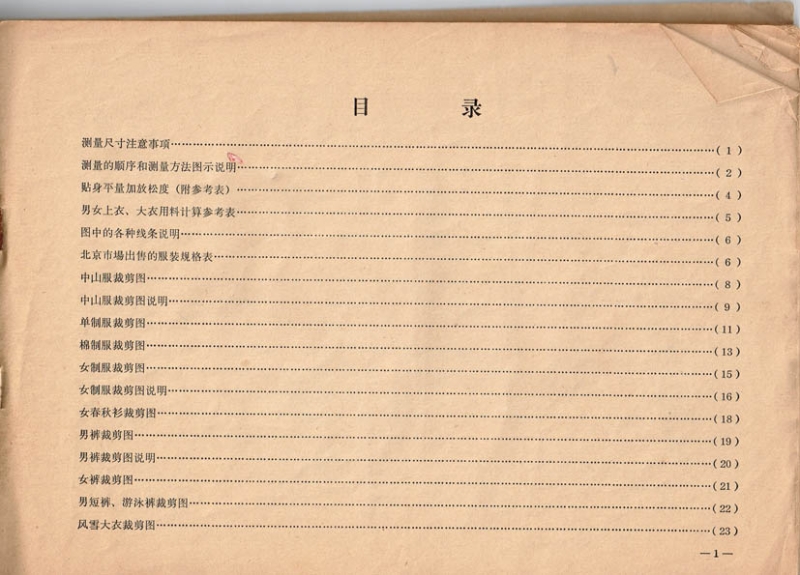 目 录
测量尺寸注意事項……(1)
测量的顺序和测量方法图示说明……(2)
贴身平量加放松度(附参考表)……(4)
男女上衣、大衣用料计算参考表……(5)
图中的各种线条说明……(6)
北京市場出售的服装规格表……(6)
中山服裁剪图……(8)
中山服裁剪图说明……(9)
单制服裁剪图……(11)
棉制服裁剪图……(13)
女制服裁剪图……(15)
女制服裁剪图说明……(16)
女春秋衫裁剪图……(18)
男裤裁剪图……(19)
男裤裁剪图说明……(20)
女裤裁剪图……(21)
男短裤、游泳裤裁剪图……(22)
风雪大衣裁剪图……(23)
—1—